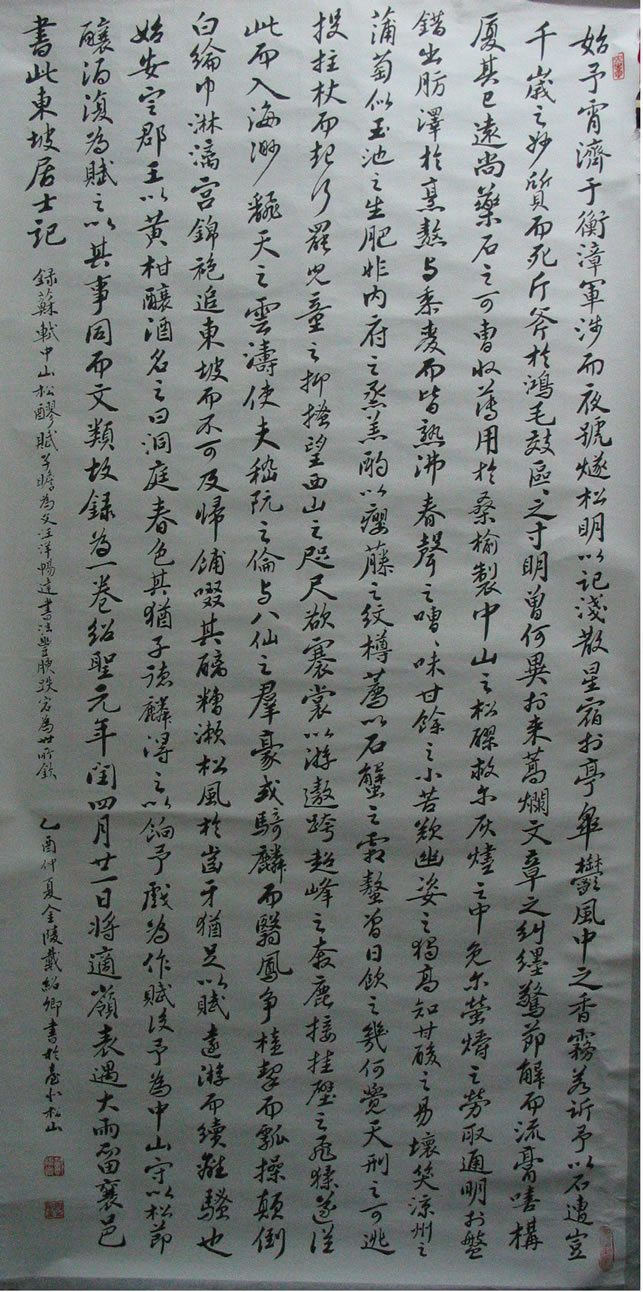 始予宵濟于衡漳軍涉而夜號燧松明以記淺散星宿於亭皋鬱風中之香霧若訴予以不遭豈
千歲之妙質而死斤斧於鴻毛效區區之寸明曾何異於束蒿爛文章之糾纏驚節解而流膏嘻構
廈其已遠尚藥石之可曹收薄用於桑榆製中山之松醪救尔灰燼之中免尔螢爝之勞取通明於盤
錯出肪澤於烹熬与黍麥而皆熟沸舂聲之嘈嘈味甘餘之小苦歎幽姿之獨高知甘酸之易壞笑涼州之
蒲萄似玉池之生肥非内府之烝羔酌以癭藤之紋樽薦以石蟹之霜螯曾日飲之幾何覺天刑之可逃
投拄杖而起行罷兒童之抑搔望西山之咫尺欲褰裳以游遨跨超峰之奔鹿接挂壁之飛猱遂從
此而入海渺翻天之雲濤使夫嵇阮之倫与八仙之羣豪或騎麟而翳鳳爭榼挈而瓢操顛倒
白綸巾淋漓宮錦袍追東坡而不可及歸餔啜其醨糟漱松風於齒牙猶足以賦遠游而續離騷也
始安定郡王以黃柑釀酒名之曰洞庭春色其猶子德麟得之以餉予戲為作賦後予為中山守以松節
釀酒復為賦之以其事同而文類故錄為一卷紹聖元年閏四月廿一日將適嶺表遇大雨留襄邑
書此東坡居士記
録蘇軾中山松醪賦子瞻為文汪洋暢達書法豐腴跌宕為世所欽
乙酉仲夏金陵戴紹卿書於臺北松山